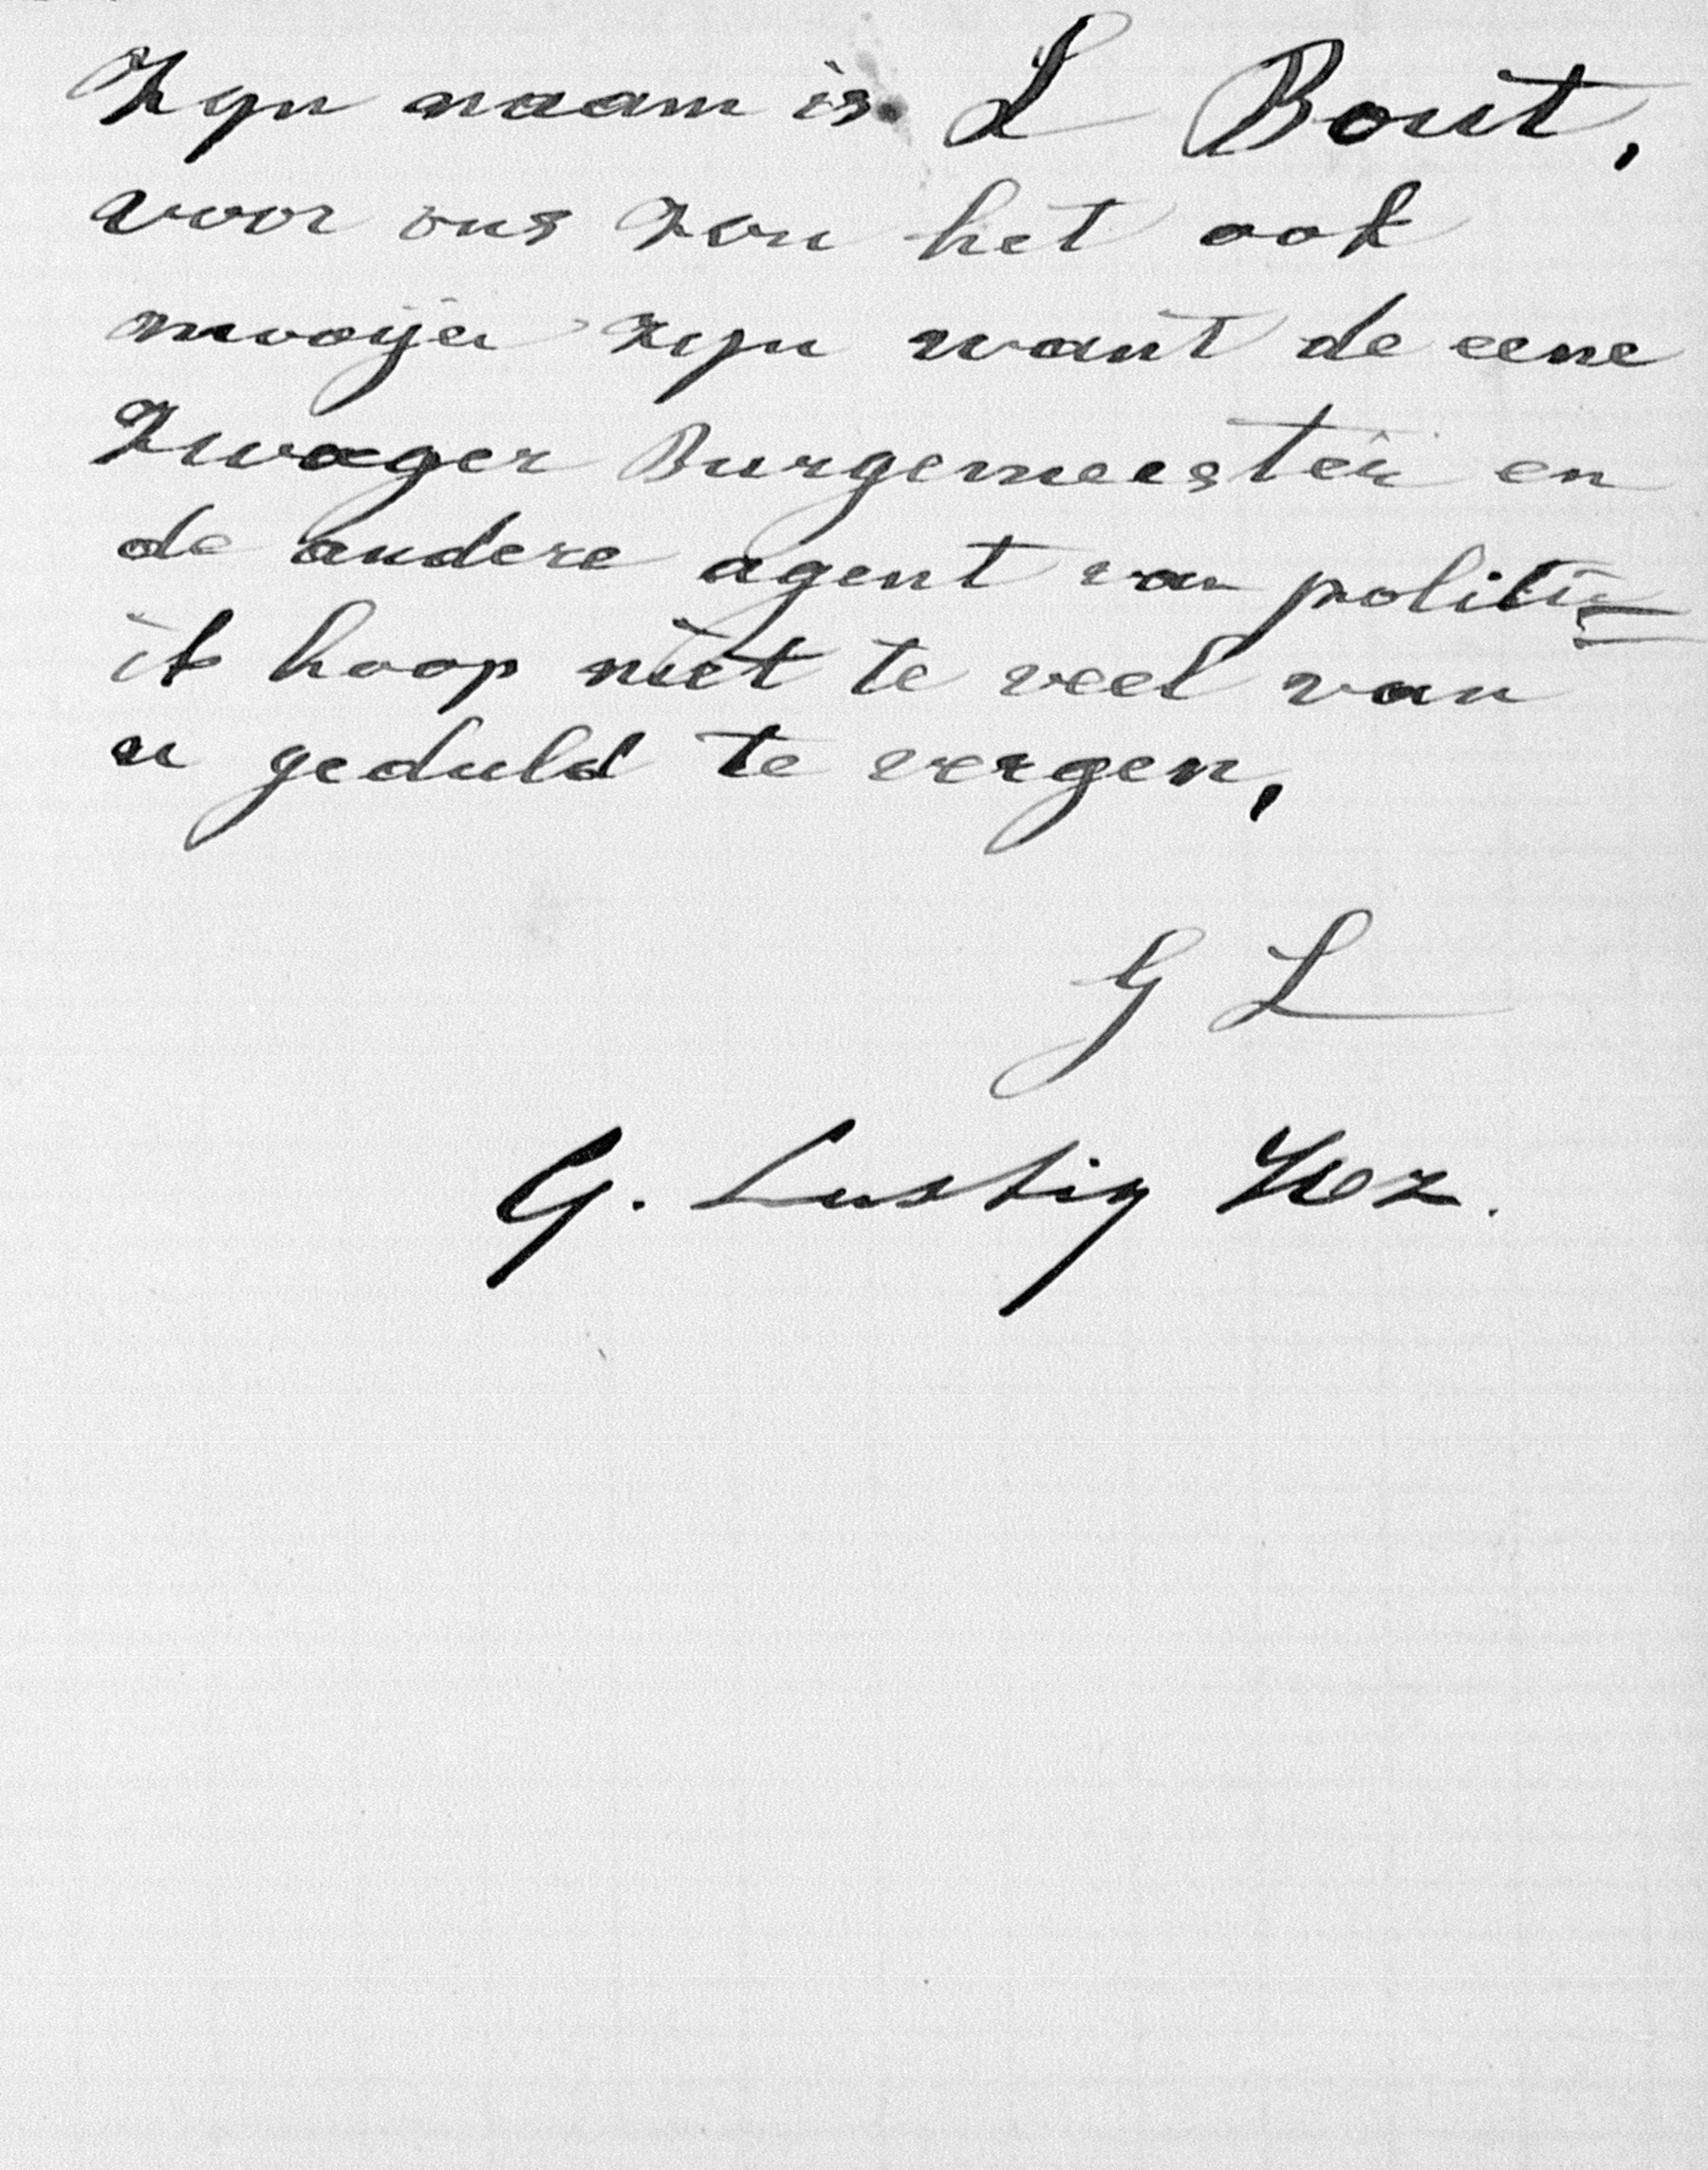 Zyn naam is L Bout,
voor ons zou het ook
mooyer zyn want de eene
Zwager Burgemeester en
de andere agent van politie
ik hoop niet te veel van
u geduld te vergen,
G L
G. Lustig